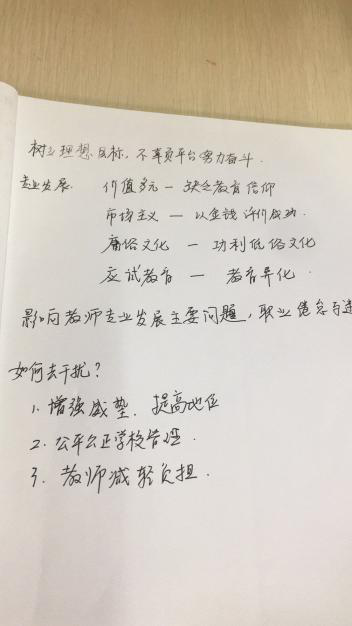 树立理想目标，不辜负平台努力奋斗.
专业发展. 价值多元 — 缺乏教育信仰
市场主义 — 以金钱评价成功.
庸俗文化 — 功利低俗文化
应试教育 — 教育异化.
影响教师专业发展主要问题，职业倦怠与
如何去干扰？
1. 增强威望. 提高地位
2. 公平公正学校管理.
3. 教师减轻负担.